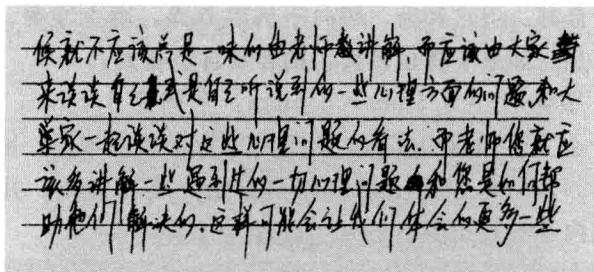 候就不应该总是一味的由老师教讲解，而应该由大家
来谈谈自己或是自己听说到的一些心理方面的问题，和大
家一起谈谈对这些心理问题的看法。而老师您就应
该多讲解一些遇到过的一切心理问题和您是如何帮
助他们解决的，这样可能会让我们体会的更多一些